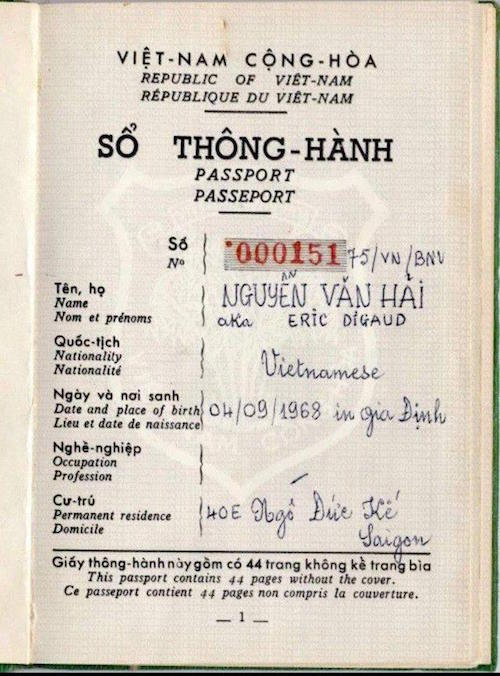 VIỆT-NAM CỘNG-HÒA
REPUBLIC OF VIÊT-NAM
RÉPUBLIQUE DU VIÊT-NAM
SỔ THÔNG-HÀNH
PASSPORT
PASSEPORT
Số
Nº
*000151 75/VN/BNV
Tên, họ
Name
Nom et prénoms
NGUYỄN VĂN HẢI
aka ERIC DIGAUD
Quốc-tịch
Nationality
Nationalité
Vietnamese
Ngày và nơi sanh
Date and place of birth
Lieu et date de naissance
04/09/1968 in gia Định
Nghề-nghiệp
Occupation
Profession
Cư-trú
Permanent residence
Domicile
40E Ngô Đức Kế
Saigon
Giấy thông-hành này gồm có 44 trang không kể trang bìa
This passport contains 44 pages without the cover.
Ce passeport contient 44 pages non compris la couverture.
— 1 —